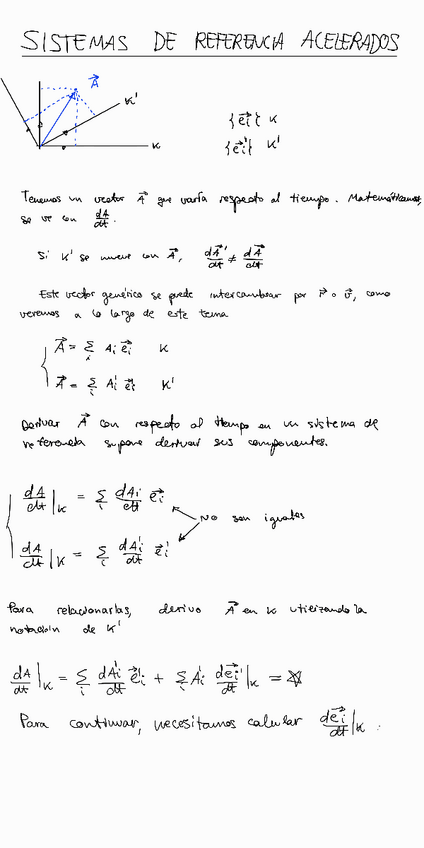 SISTEMAS DE REFERENCIA ACELERADOS
A⃗
K'
K
{e⃗i} K
{e⃗i'} K'
Tenemos un vector A⃗ que varía respecto al tiempo. Matemáticamente,
se ve con dA⃗/dt.
Si K' se mueve con A⃗, dA⃗'/dt ≠ dA⃗/dt
Este vector genérico se puede intercambiar por r⃗ o v⃗, como
veremos a lo largo de este tema
A⃗ = Σi Ai e⃗i K
A⃗ = Σi Ai' e⃗i' K'
Derivar A⃗ con respecto al tiempo en un sistema de
referencia supone derivar sus componentes.
dA/dt |K = Σi dAi/dt e⃗i
No son iguales
dA/dt |K = Σi dAi'/dt e⃗i'
Para relacionarlas, derivo A⃗ en K utilizando la
notación de K'
dA/dt |K = Σi dAi'/dt e⃗i' + Σi Ai' de⃗i'/dt |K = ☆
Para continuar, necesitamos calular de⃗i'/dt |K :